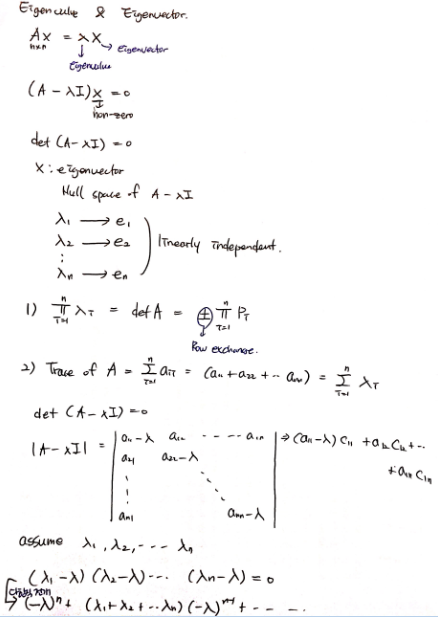 Eigenvalue & Eigenvector.
Ax = λx → eigenvector
n×n
Eigenvalue
(A - λI)x = 0
non-zero
det (A - λI) = 0
x : eigenvector
Null space of A - λI
λ₁ → e₁
λ₂ → e₂
⋮
λn → en
linearly independent.
1) ∏ᵢ₌₁ⁿ λᵢ = det A = ± ∏ᵢ₌₁ⁿ Pᵢ
Row exchange.
2) Trace of A = Σᵢ₌₁ⁿ aᵢᵢ = (a₁₁ + a₂₂ + ·· ann) = Σᵢ₌₁ⁿ λᵢ
det (A - λI) = 0
|A - λI| = | a₁₁ - λ a₁₂ ---- a₁n | ⇒ (a₁₁ - λ) C₁₁ + a₁₂C₁₂ + ··
a₂₁ a₂₂ - λ + a₁n C₁n
⋮ ⋱
an1 ann - λ
assume λ₁, λ₂, --- λn
(λ₁ - λ) (λ₂ - λ) ··· (λn - λ) = 0
→ (-λ)ⁿ + (λ₁ + λ₂ + ·· λn) (-λ)ⁿ⁻¹ + -- --.